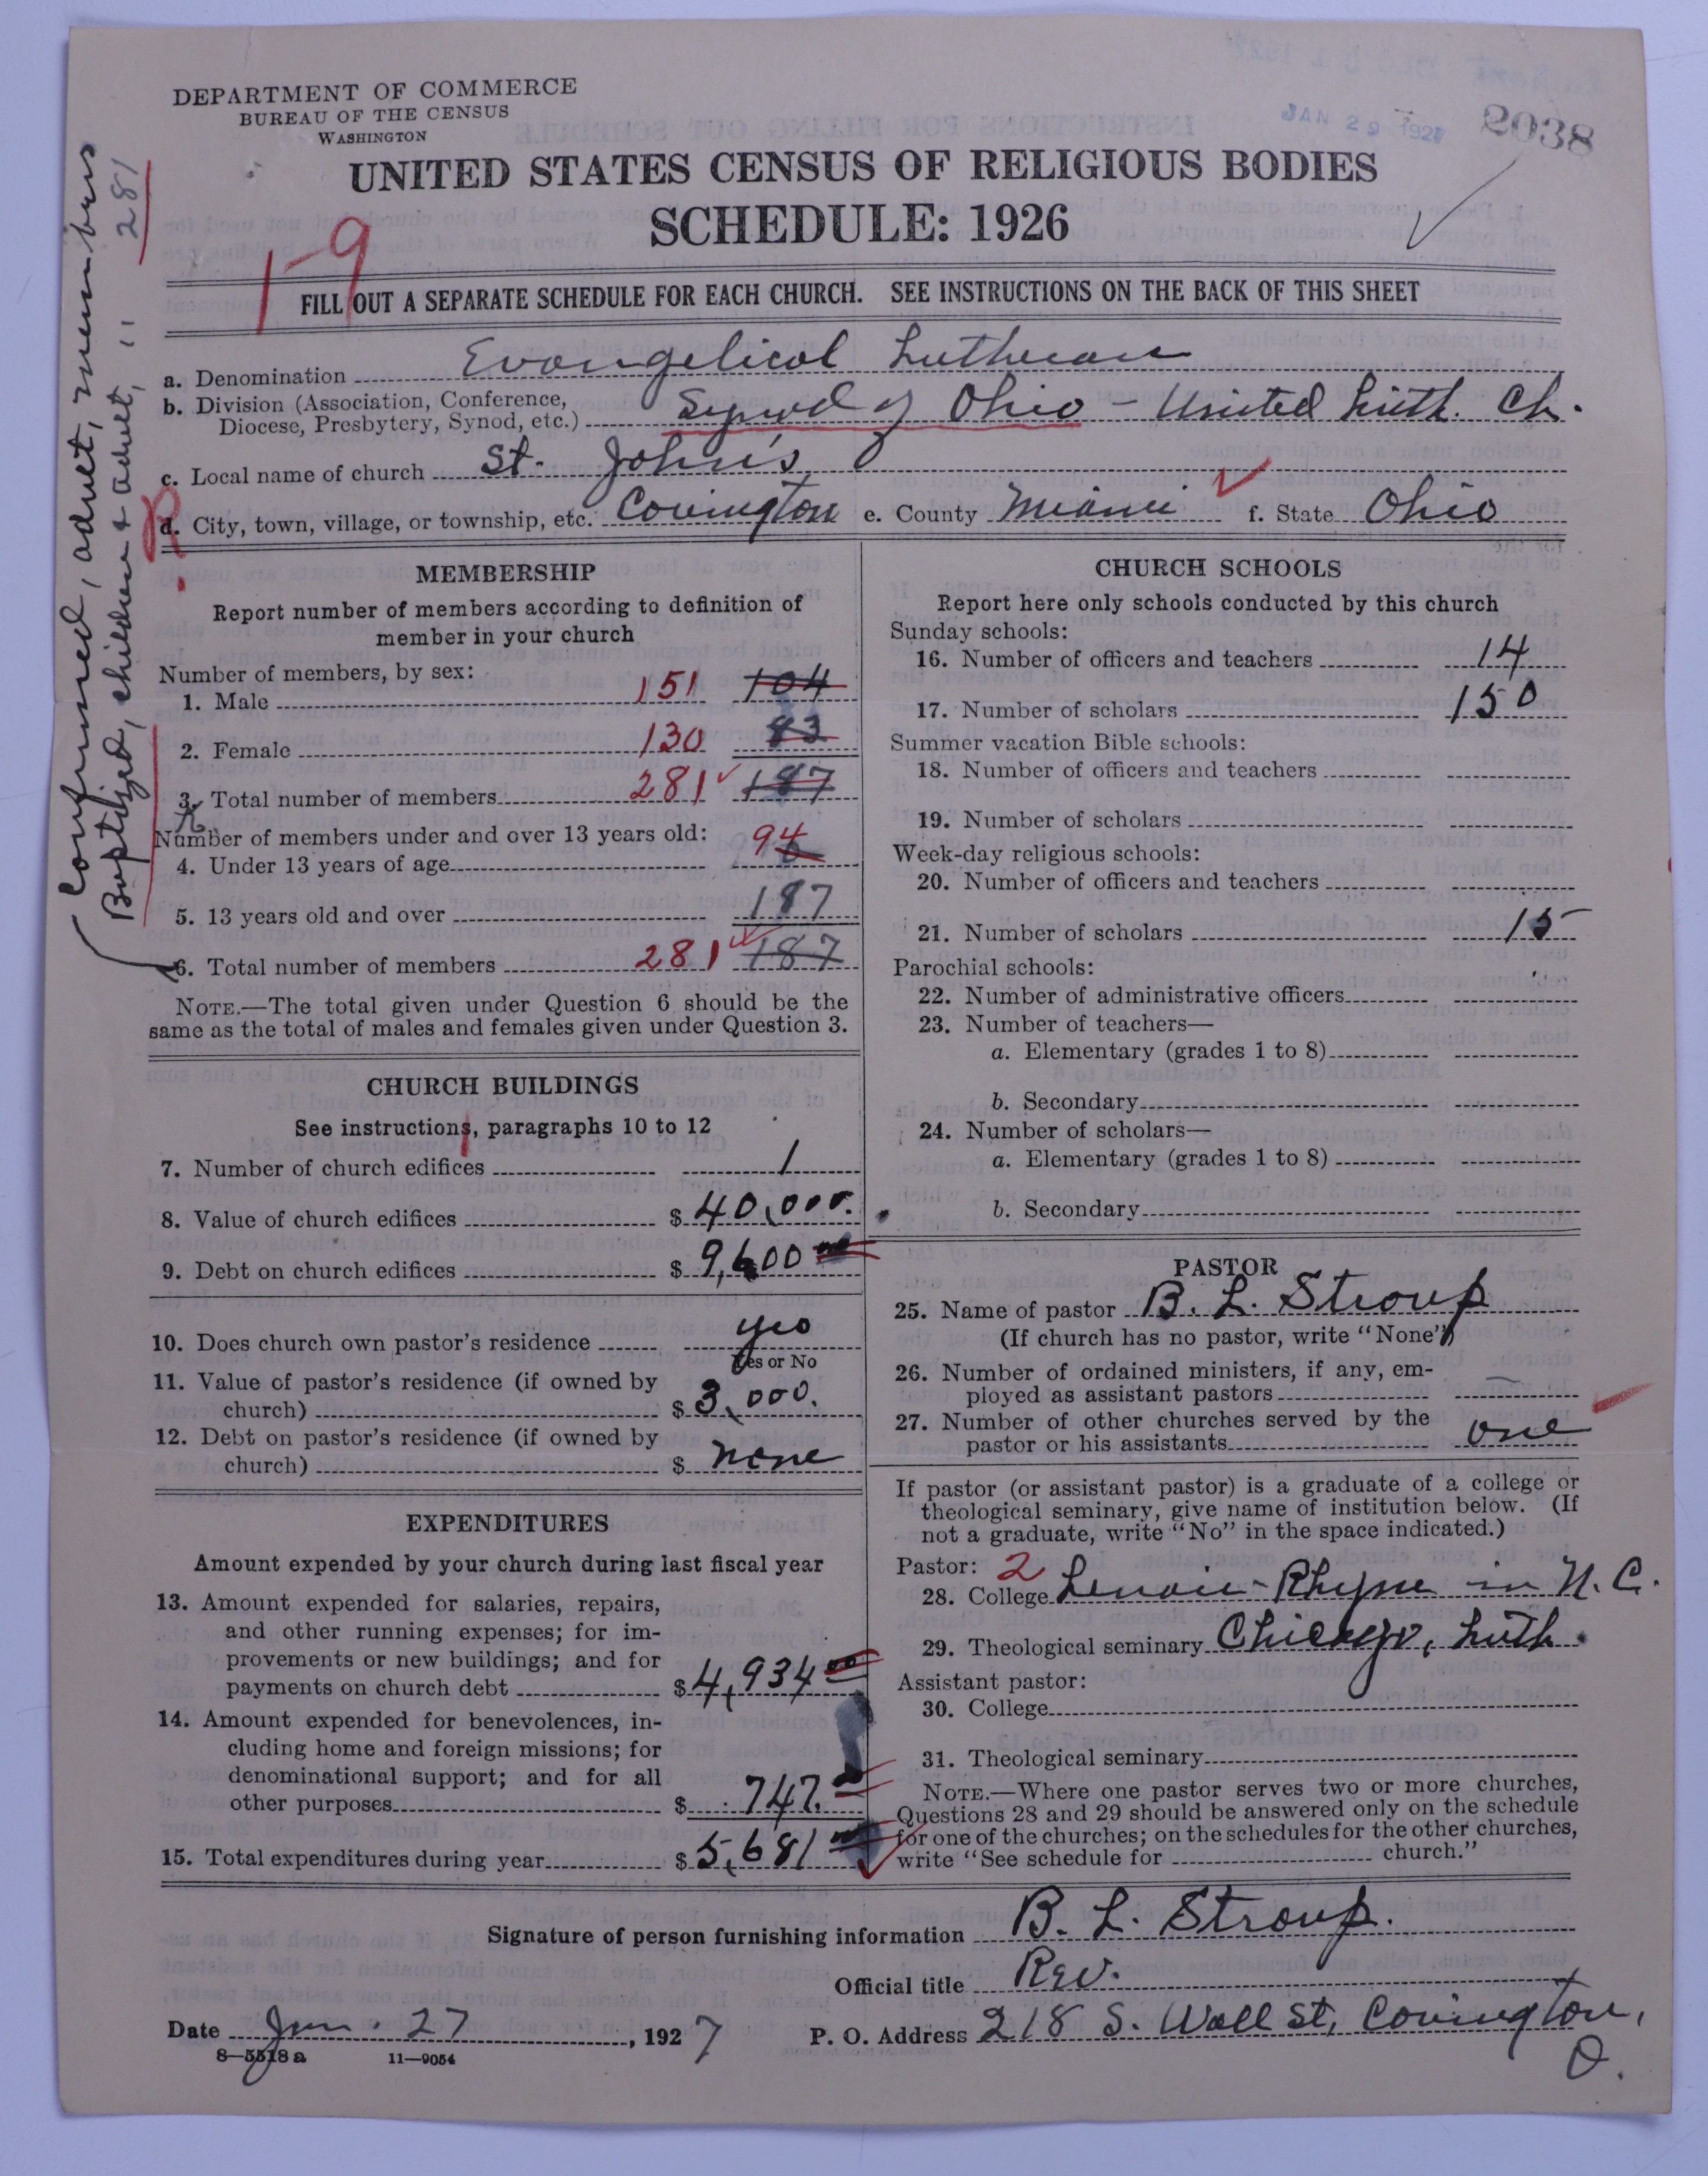 DEPARTMENT OF COMMERCE
BUREAU OF THE CENSUS
WASHINGTON
JAN 29 1927
2038
UNITED STATES CENSUS OF RELIGIOUS BODIES
SCHEDULE: 1926
1-9
FILL OUT A SEPARATE SCHEDULE FOR EACH CHURCH. SEE INSTRUCTIONS ON THE BACK OF THIS SHEET
Confirmed, adult, members
Baptized, children & adult, " 281
a. Denomination Evangelical Lutheran
b. Division (Association, Conference,
Diocese, Presbytery, Synod, etc.) Synod of Ohio - United Luth. Ch.
c. Local name of church St. John's
d. City, town, village, or township, etc. Covington e. County Miami f. State Ohio
MEMBERSHIP
Report number of members according to definition of
member in your church
Number of members, by sex:
1. Male 151 104
2. Female 130 83
3. Total number of members 281 187
Number of members under and over 13 years old:
4. Under 13 years of age 94
5. 13 years old and over 187
6. Total number of members 281 187
NOTE.—The total given under Question 6 should be the
same as the total of males and females given under Question 3.
CHURCH BUILDINGS
See instructions, paragraphs 10 to 12
7. Number of church edifices 1
8. Value of church edifices $ 40,000.
9. Debt on church edifices $ 9,600
10. Does church own pastor's residence yes
Yes or No
11. Value of pastor's residence (if owned by
church) $ 3,000.
12. Debt on pastor's residence (if owned by
church) $ none
EXPENDITURES
Amount expended by your church during last fiscal year
13. Amount expended for salaries, repairs,
and other running expenses; for im-
provements or new buildings; and for
payments on church debt $ 4,934 00
14. Amount expended for benevolences, in-
cluding home and foreign missions; for
denominational support; and for all
other purposes $ 747.
15. Total expenditures during year $ 5,681
CHURCH SCHOOLS
Report here only schools conducted by this church
Sunday schools:
16. Number of officers and teachers 14
17. Number of scholars 150
Summer vacation Bible schools:
18. Number of officers and teachers
19. Number of scholars
Week-day religious schools:
20. Number of officers and teachers
21. Number of scholars 15
Parochial schools:
22. Number of administrative officers
23. Number of teachers—
a. Elementary (grades 1 to 8)
b. Secondary
24. Number of scholars—
a. Elementary (grades 1 to 8)
b. Secondary
PASTOR
25. Name of pastor B. L. Stroup
(If church has no pastor, write "None")
26. Number of ordained ministers, if any, em-
ployed as assistant pastors —
27. Number of other churches served by the
pastor or his assistants one
If pastor (or assistant pastor) is a graduate of a college or
theological seminary, give name of institution below. (If
not a graduate, write "No" in the space indicated.)
Pastor: 2
28. College Lenoir-Rhyne in N. C.
29. Theological seminary Chicago, Luth.
Assistant pastor:
30. College
31. Theological seminary
NOTE.—Where one pastor serves two or more churches,
Questions 28 and 29 should be answered only on the schedule
for one of the churches; on the schedules for the other churches,
write "See schedule for church."
Signature of person furnishing information B. L. Stroup.
Official title Rev.
Date Jan. 27, 1927 P. O. Address 218 S. Wall St, Covington,
O.
8—5518 a 11—9054